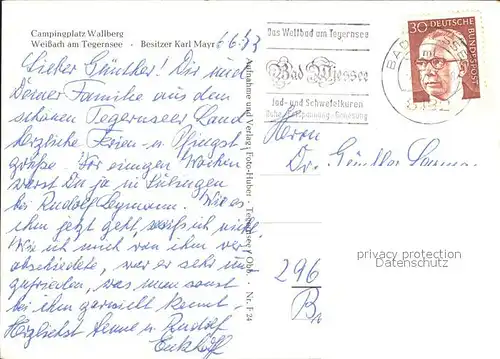 Campingplatz Wallberg
Weißach am Tegernsee · Besitzer Karl Mayr
6.6.73
Lieber Günther! Dir und
Deiner Familie aus dem
schönen Tegernseer Land
herzliche Ferien- u. Pfingst-
grüße. Vor einigen Wochen
warst Du ja in Tübingen
bei Rudolf Wie es
ihm jetzt geht, weiß ich nicht.
Wie ich mich von ihm ver-
abschiedete, war er sehr
zufrieden, was man sonst
bei ihm garnicht kennt.
Herzlichst Hanne u. Rudolf
Eckhoff
Aufnahme und Verlag: Foto-Huber · Tegernsee / Obb. · Nr. F 24
Das Weltbad am Tegernsee
Bad Wiessee
Jod- und Schwefelkuren
Ruhe Entspannung Genesung
30
DEUTSCHE BUNDESPOST
BAD WIESSEE
8182
Herrn
Dr. Günther
296
privacy protection
AK-Ansichtskarten.de